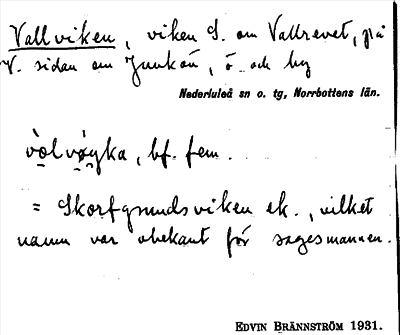 Vallviken, viken S. om Vallrevet, på
V. sidan om Junkön, ö och by
Nederluleå sn o. tg, Norrbottens län.
vòlvø̀yka, bf. fem.
= Skorfgrundsviken ek., vilket
namn var obekant för sagesmannen.
EDVIN BRÄNNSTRÖM 1931.